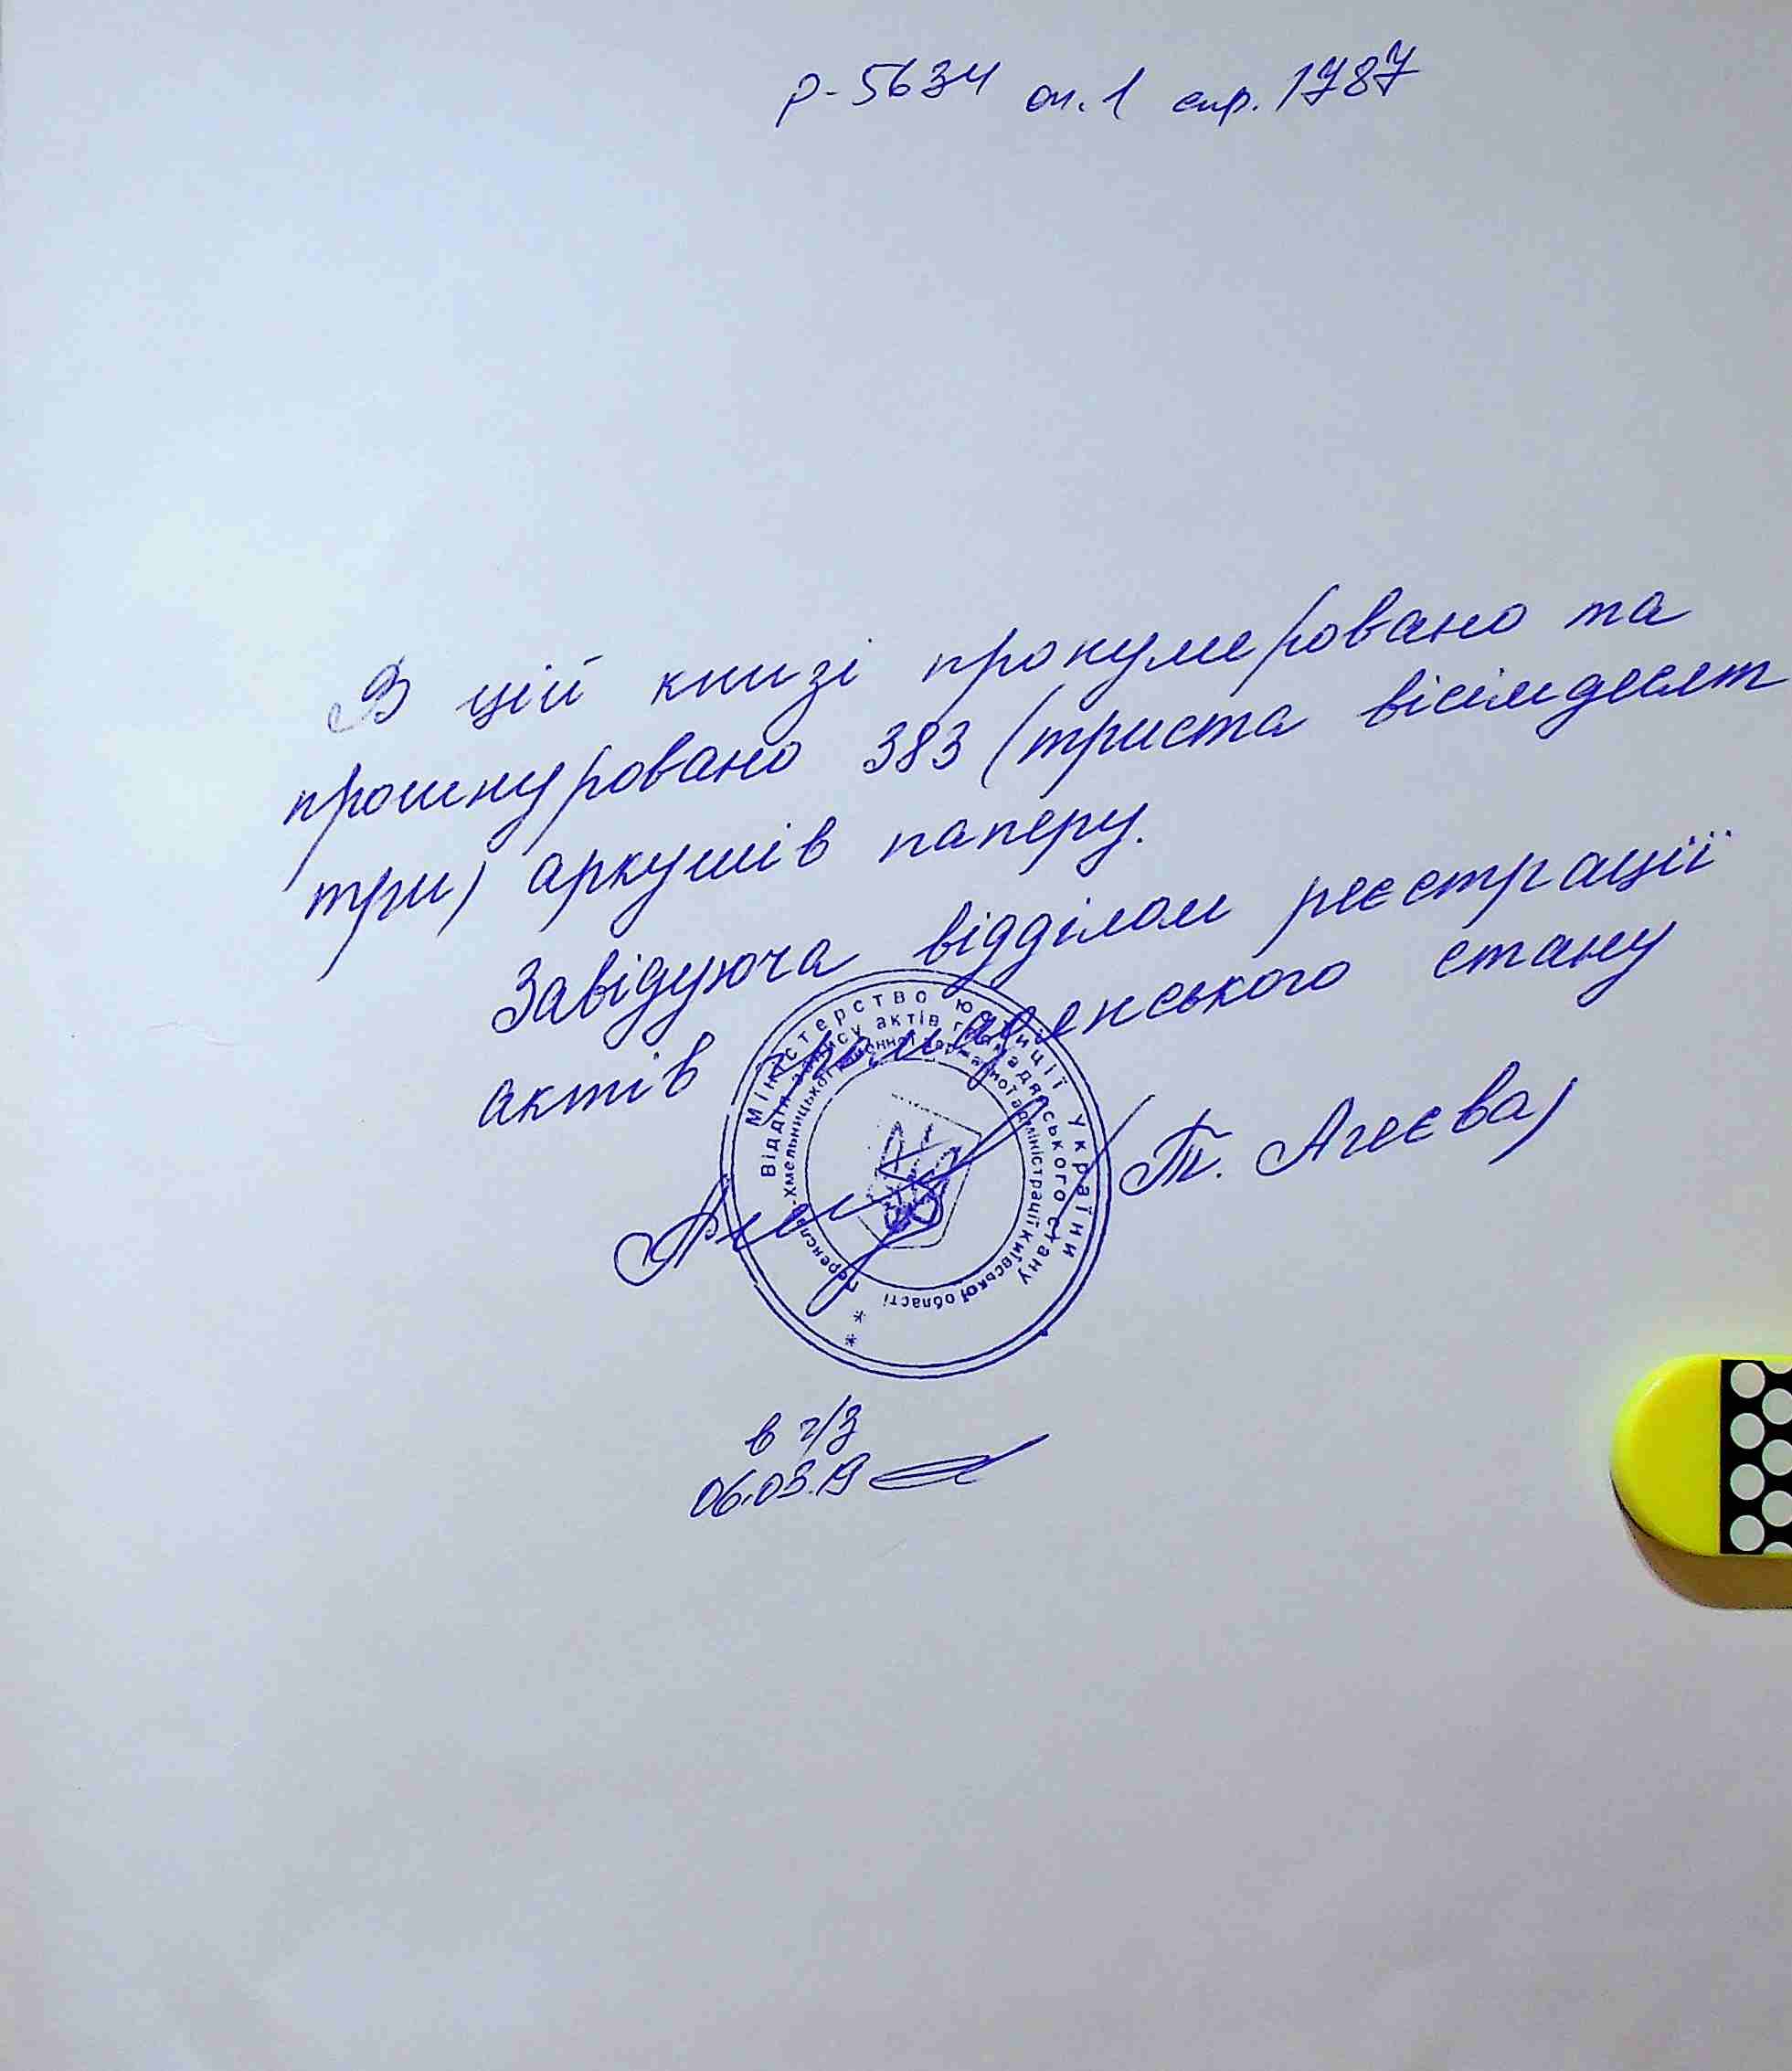 Р-5634 оп. 1 спр. 1787
В цій книзі пронумеровано та
прошнуровано 383 (триста вісімдесят
три) аркушів паперу.
Завідуюча відділом реєстрації
актів громадянського стану
(Т. Агеєва)
Міністерство юстиції України
Відділ запису актів громадянського стану
Переяслав-Хмельницької районної державної адміністрації Київської області
* *
в г/з
06.03.19